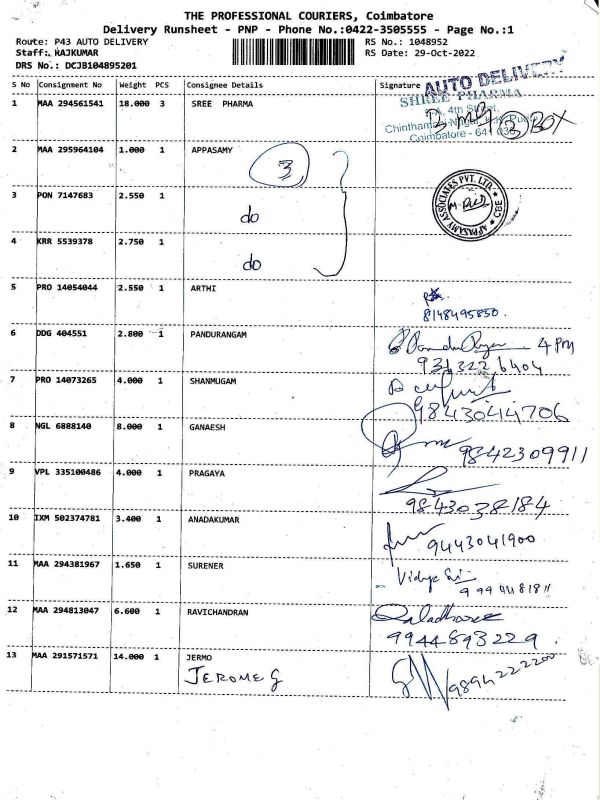 THE PROFESSIONAL COURIERS, Coimbatore
Delivery Runsheet - PNP - Phone No.:0422-3505555 - Page No.:1
Route: P43 AUTO DELIVERY RS No.: 1048952
Staff: RAJKUMAR RS Date: 29-Oct-2022
DRS No.: DCJB104895201
S No Consignment No Weight PCS Consignee Details Signature
AUTO DELIVERY
1 MAA 294561541 18.000 3 SREE PHARMA
SHREE PHARMA
4th Street,
Coimbatore - 641
3 BOX
2 MAA 295964104 1.000 1 APPASAMY
3
APPASAMY ASSOCIATES PVT. LTD. CBE
3 PON 7147683 2.550 1
do
4 KRR 5539378 2.750 1
do
5 PRO 14054044 2.550 1 ARTHI
8148495850
6 DDG 404551 2.800 1 PANDURANGAM
4 PM
9343226404
7 PRO 14073265 4.000 1 SHANMUGAM
9843044706
8 NGL 6888140 8.000 1 GANAESH
9842309911
9 VPL 335100486 4.000 1 PRAGAYA
9843038184
10 IXM 502374781 3.400 1 ANADAKUMAR
9443041900
11 MAA 294381967 1.650 1 SURENER
12 MAA 294813047 6.600 1 RAVICHANDRAN
9944893229
13 MAA 291571571 14.000 1 JERMO
JEROME G
9894222200